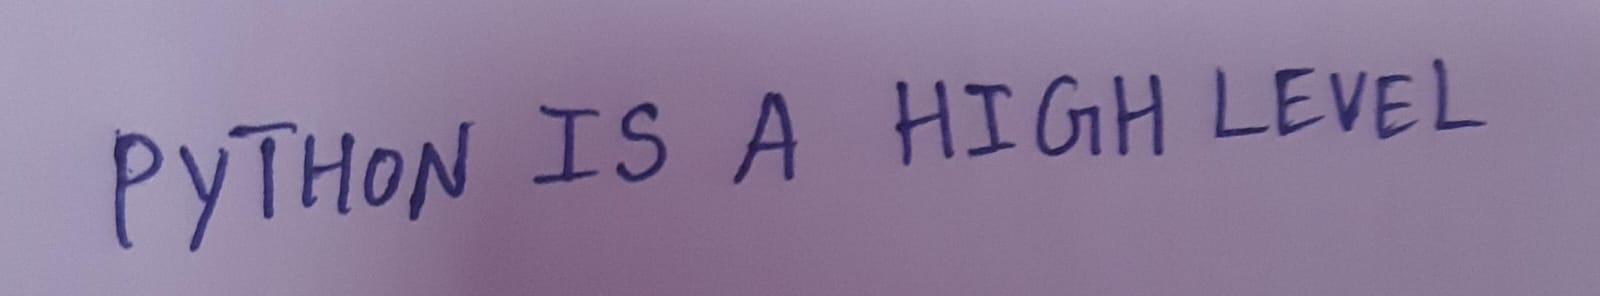 PYTHON IS A HIGH LEVEL